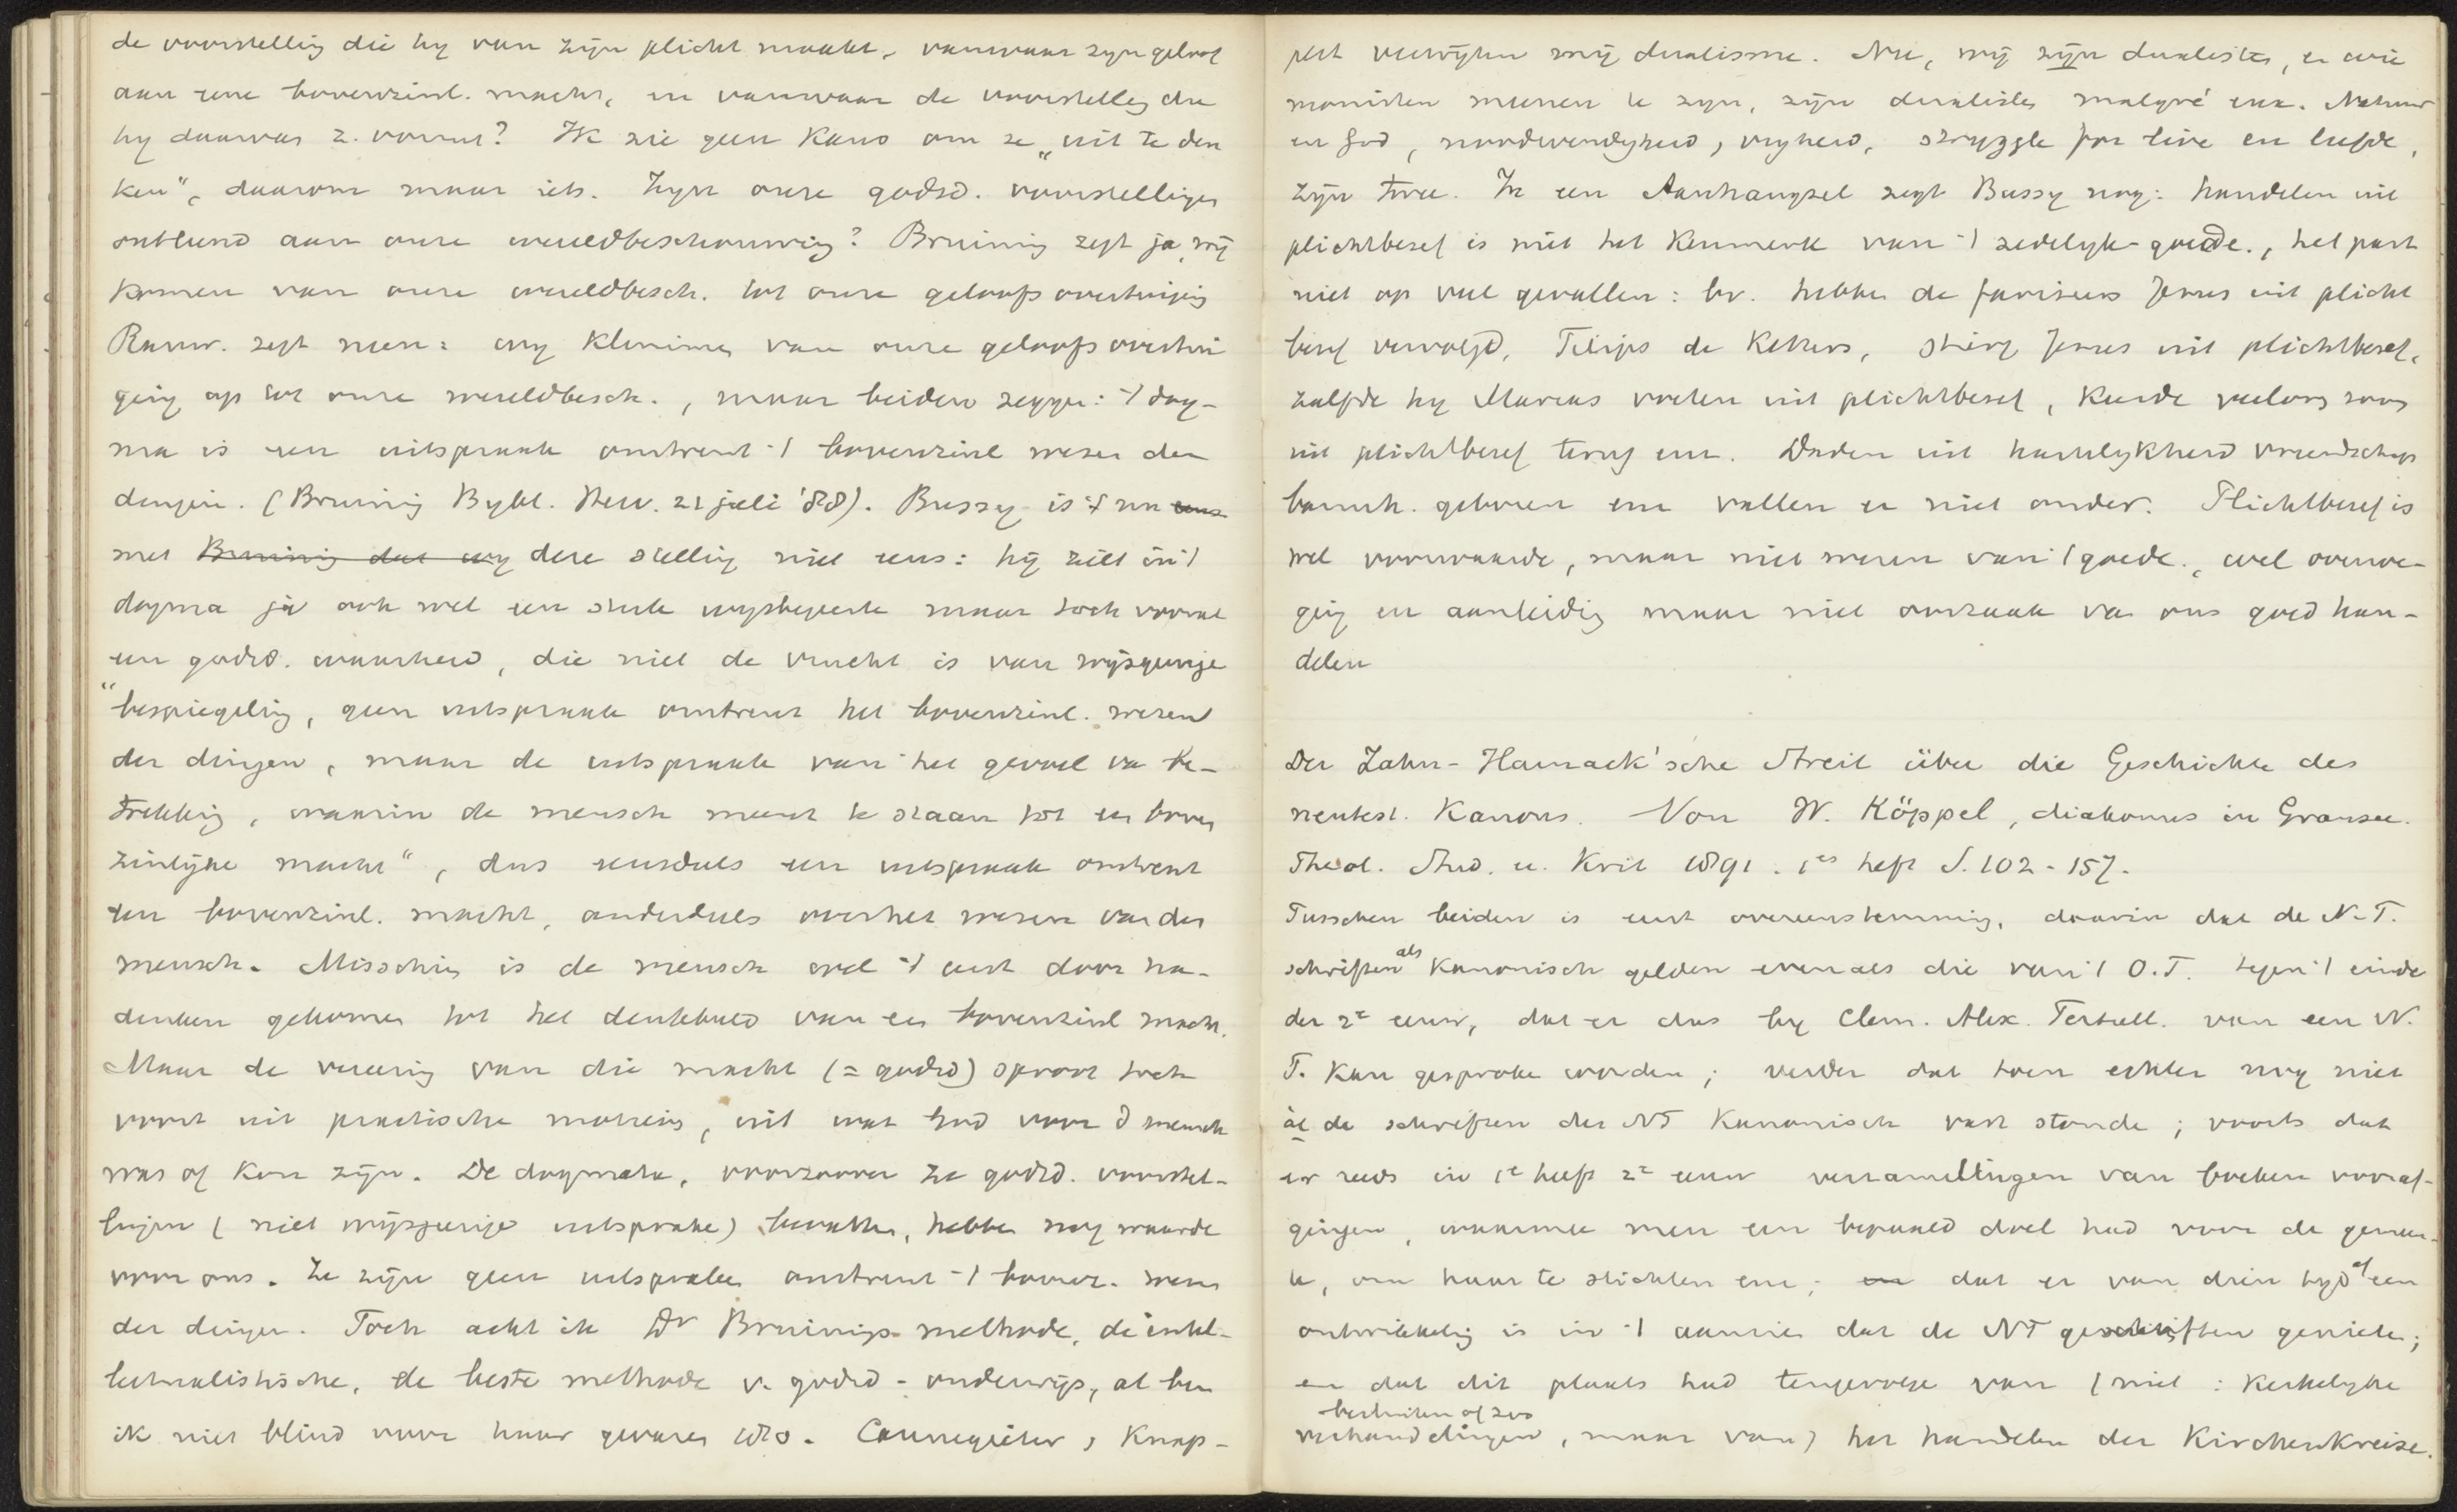 de voorstelling die hy van zijn plicht maakt, vanwaar zyn geloof
aan eene bovenzinl. macht, en vanwaar de voorstelling die
hy daarvan z. vormt? Ik zie geen kans om ze „uit te den
ken", daarom maar iets. Zyn onze godsd. voorstellingen
ontleend aan onze wereldbeschouwing? Bruining zegt ja, wij
komen van onze wereldbesch. tot onze geloofsovertuiging
Rauw. zegt neen: wy klimmen van onze geloofsovertui
ging op tot onze wereldbesch., maar beiden zeggen: 't dog-
ma is een uitspraak omtrent 't bovenzinl wezen der
dingen. (Bruining Bybl. Herv. 21 juli '88). Bussy is 't nu eens
met Bruining dat wy deze stelling niet eens: hij ziet in 't
dogma ja ook wel een stuk wysbegeerte maar toch vooral
een godsd. waarheid, die niet de vrucht is van wijsgeerige
"bespiegeling, geen uitspraak omtrent het bovenzinl. wezen
der dingen, maar de uitspraak van het gevoel va be-
trekking, waarin de mensch meent te staan tot een boven
zinlijke macht", dus eensdeels een uitspraak omtrent
een bovenzinl. macht, anderdeels over het wezen van den
mensch. Misschien is de mensch ook 't eerst door na-
denken gekomen tot het denkbeeld van een bovenzinl macht.
Maar de vereering van die macht (= godsd) sproot toch
voort uit practische motieven, uit wat God voor d mensch
was of kon zijn. De dogmata, voorzoover ze godsd. voorstel-
lingen (niet wijsgeerige uitspraken) bevatten, hebben nog waarde
voor ons. Ze zijn geen uitspraken omtrent 't bovenz. wezen
der dingen. Toch acht ik Dr Bruinings methode, de intel-
lectualistische, de beste methode v. godsd-onderwijs, al ben
ik niet blind voor haar gevaren Cannegieter, Knap-
pert verwijten mij dualisme. Nu, wij zijn dualisten, en wie
monisten meenen te zyn, zijn dualisten malgré eux. Natuur
en God, noodwendigheid, vryheid, struggle for live en liefde,
zijn twee. In een Aanhangsel zegt Bussy nog: handelen uit
plichtbesef is niet het kenmerk van 't zedelyk-goede, het past
niet op veel gevallen: bv. hebben de farizeers Jezus uit plicht
besef vervolgd, Filips de Ketters, stierf Jezus uit plichtbesef,
zalfde hy Marias voeten uit plichtbesef, keerde verloren zoon
uit plichtbesef terug enz. Daden uit hartelykheid vriendschap
barmh. geboren enz vallen er niet onder. Plichtbesef is
wel voorwaarde, maar niet wezen van 't goede, wel overwe-
ging en aanleiding maar niet oorzaak van ons goed han-
delen
Der Zahn-Harnack'sche Streit über die Geschichte des
neutest. Kanons. Von W. Köppel, diakonus in Gransee.
Theol. Stud. u. Krit 1891. 1es heft S. 102-157.
Tusschen beiden is eerst overeenstemming, daarin dat de N.T.
schriften als kanonisch gelden evenals die van 't O.T. tegen 't einde
der 2e eeuw, dat er dus by Clem. Alex. Tertull. van een N.
T. kan gesproken worden; verder dat toen echter nog niet
al de schriften des NT kanonisch vast stonden; voorts dat
er reeds in 1e helft 2e eeuw verzamelingen van boeken vooraf-
gingen, waarmee men een bepaald doel had voor de gemeen-
te, om haar te stichten enz; en dat er van dien tyd af een
ontwikkeling is in 't aanzien dat de NT geschriften genieten;
en dat dit plaats had tengevolge van (niet: kerkelyke
besluiten of zoo
verhandelingen, maar van) het handelen der Kirchenkreise.